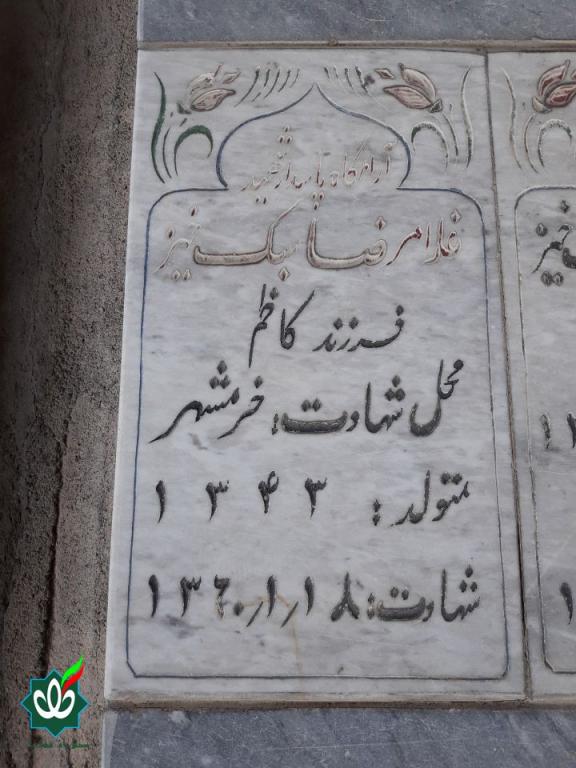 آرامگاه پاسدار شهید
غلامرضا سبک خیز
فرزند کاظم
محل شهادت: خرمشهر
متولد: ۱۳۴۳
شهادت: ۱۳۶۰/۱/۱۸